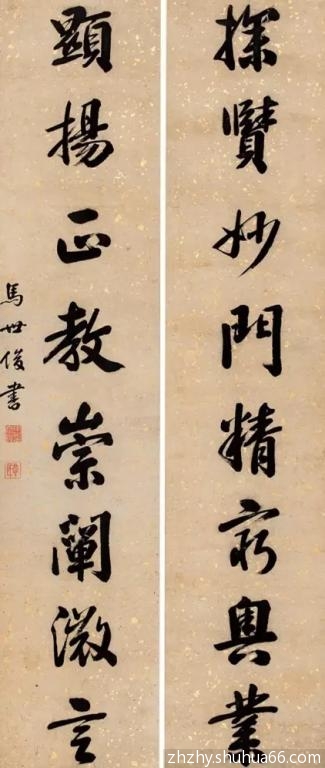 探賢妙門精窮奧業
顯揚正教崇闡微言
馬世俊書
zhzhy.shuhua66.com